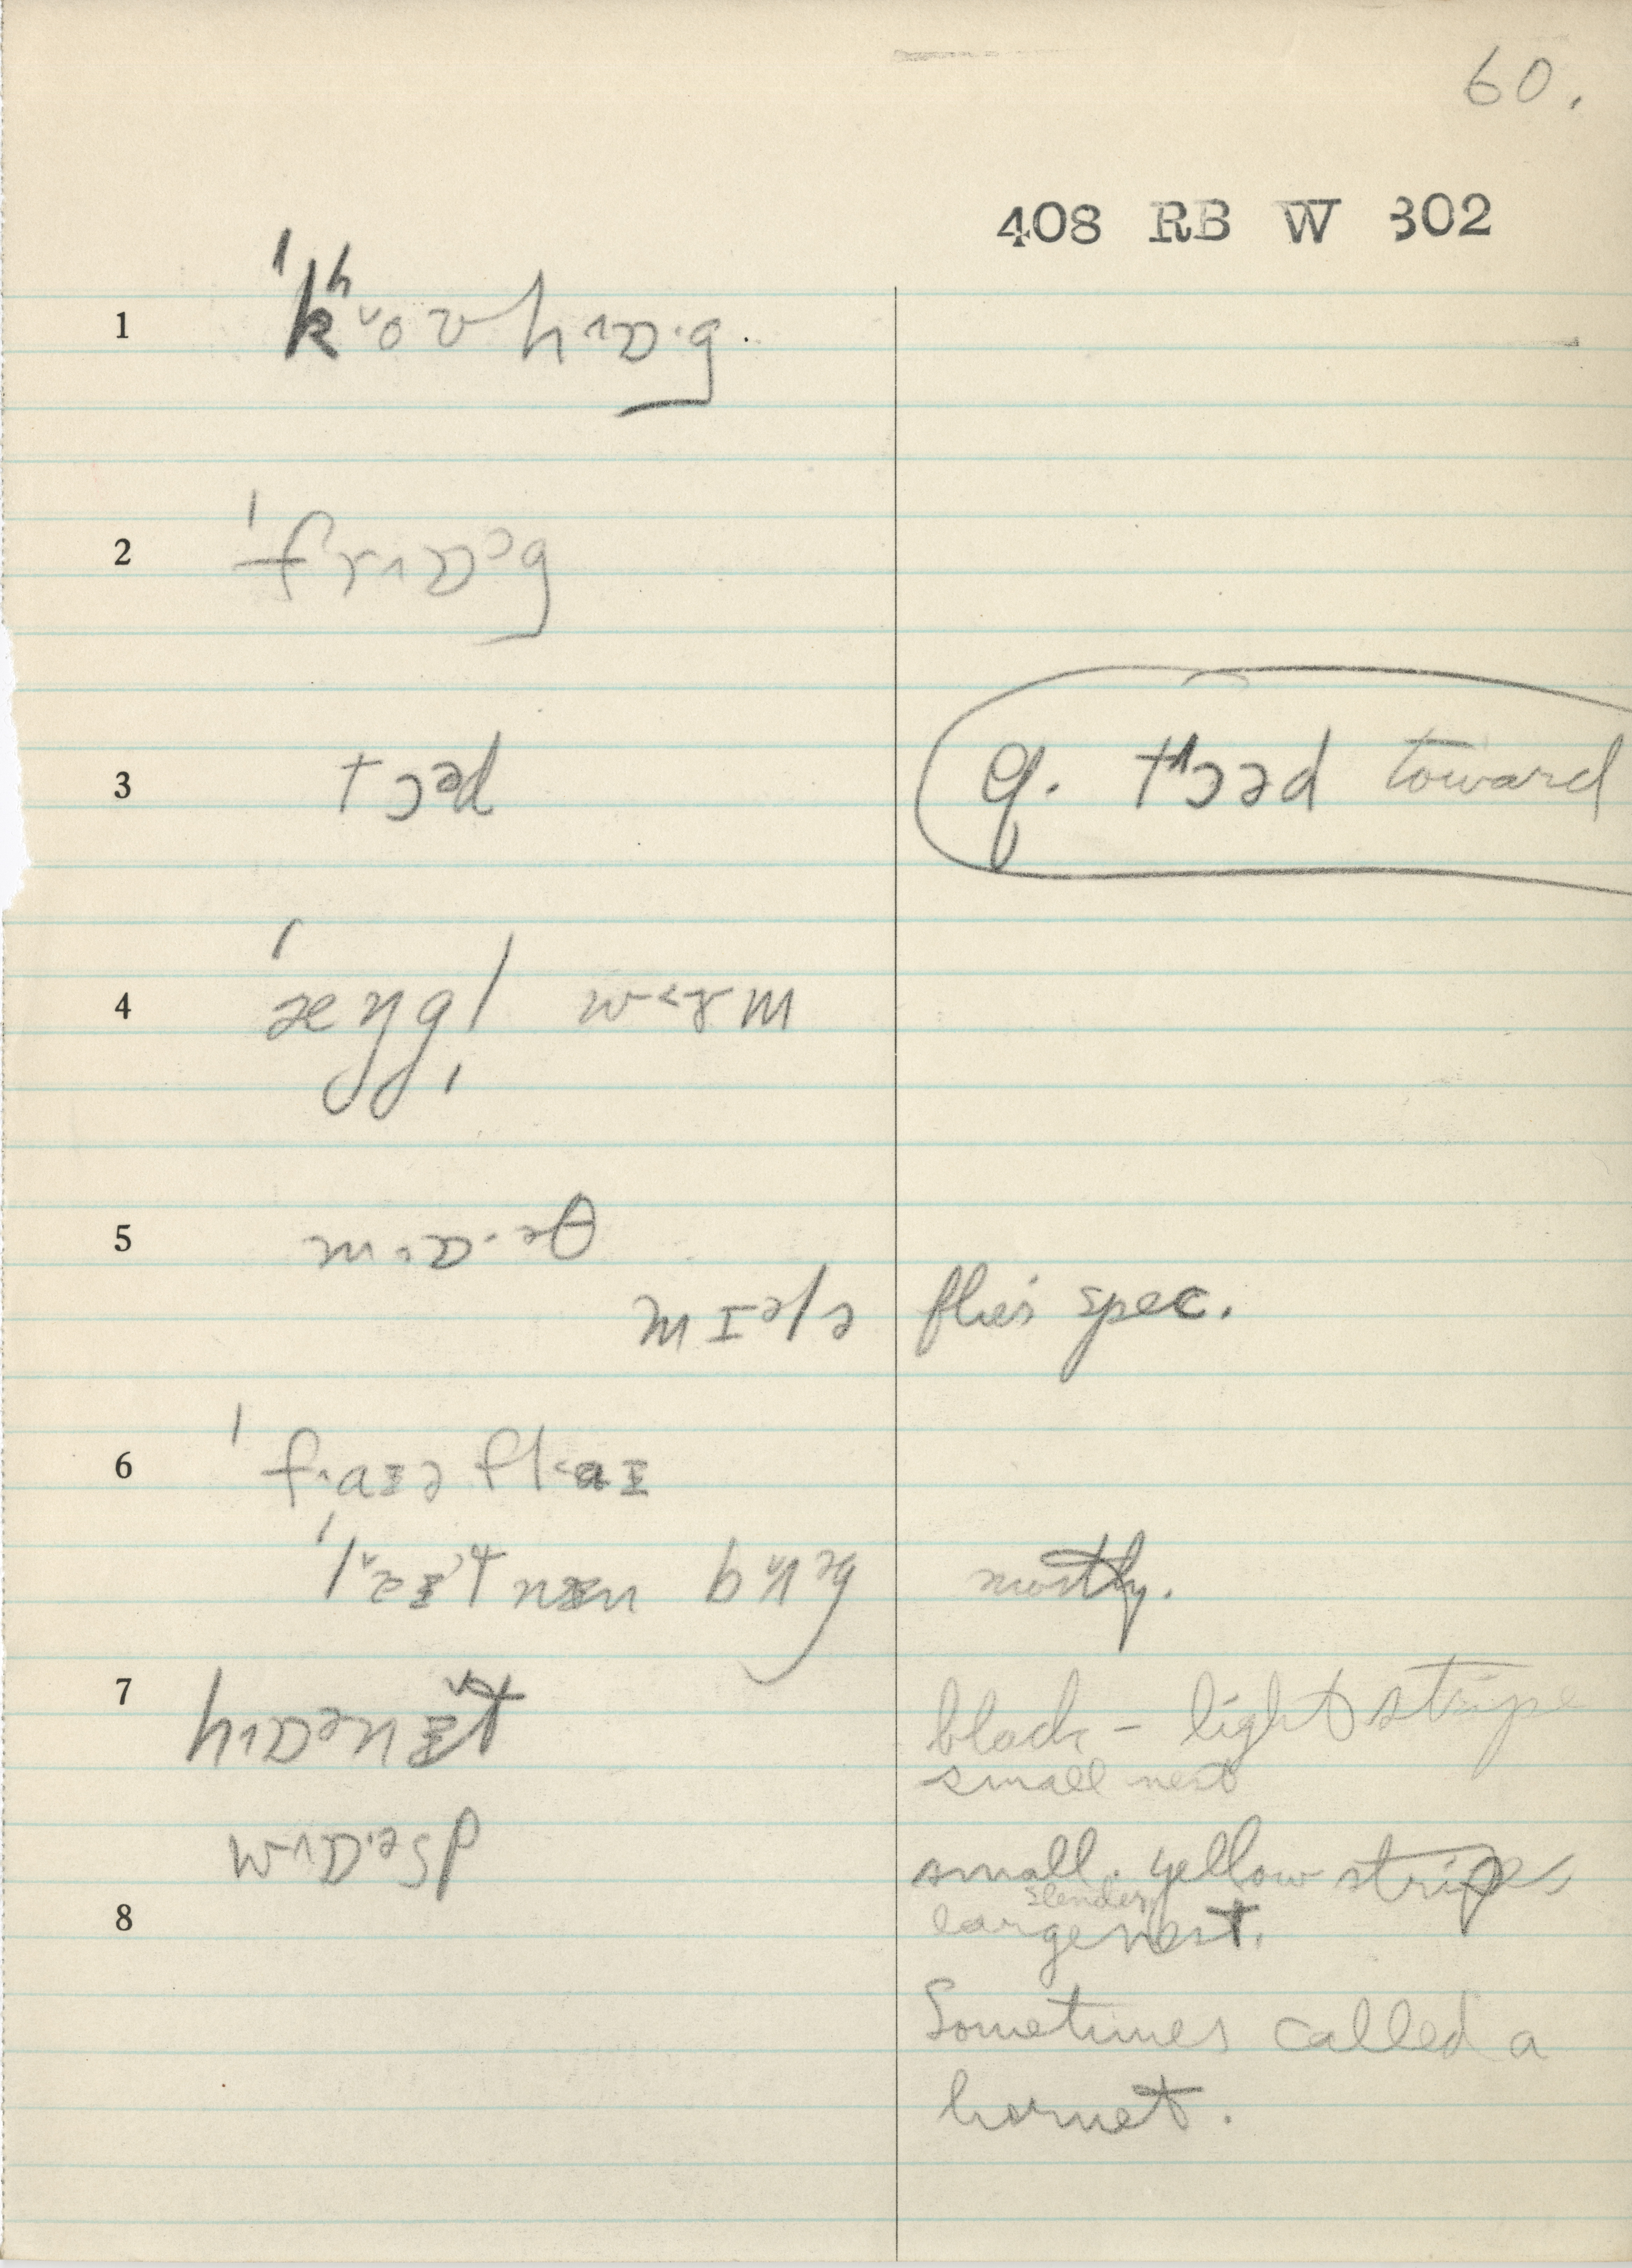 60.
408 RB W 302
1 ˈkʰ˅oʊhɒ·g.
2 ˈfrɒɔg
3 tɔəd q. tʰɔəd toward
4 ˈæŋgl̩ wɜrm
5 mɒ·əθ
mɪəls flies spec.
6 ˈfaɪəflaɪ
ˈlɐɪtnɪn bʌg mostly.
7 hɒənɪ̌t black – light stripe
small nest
wɒ·əsp small. yellow stripes
slender
8 large nest.
Sometimes called a
hornet.